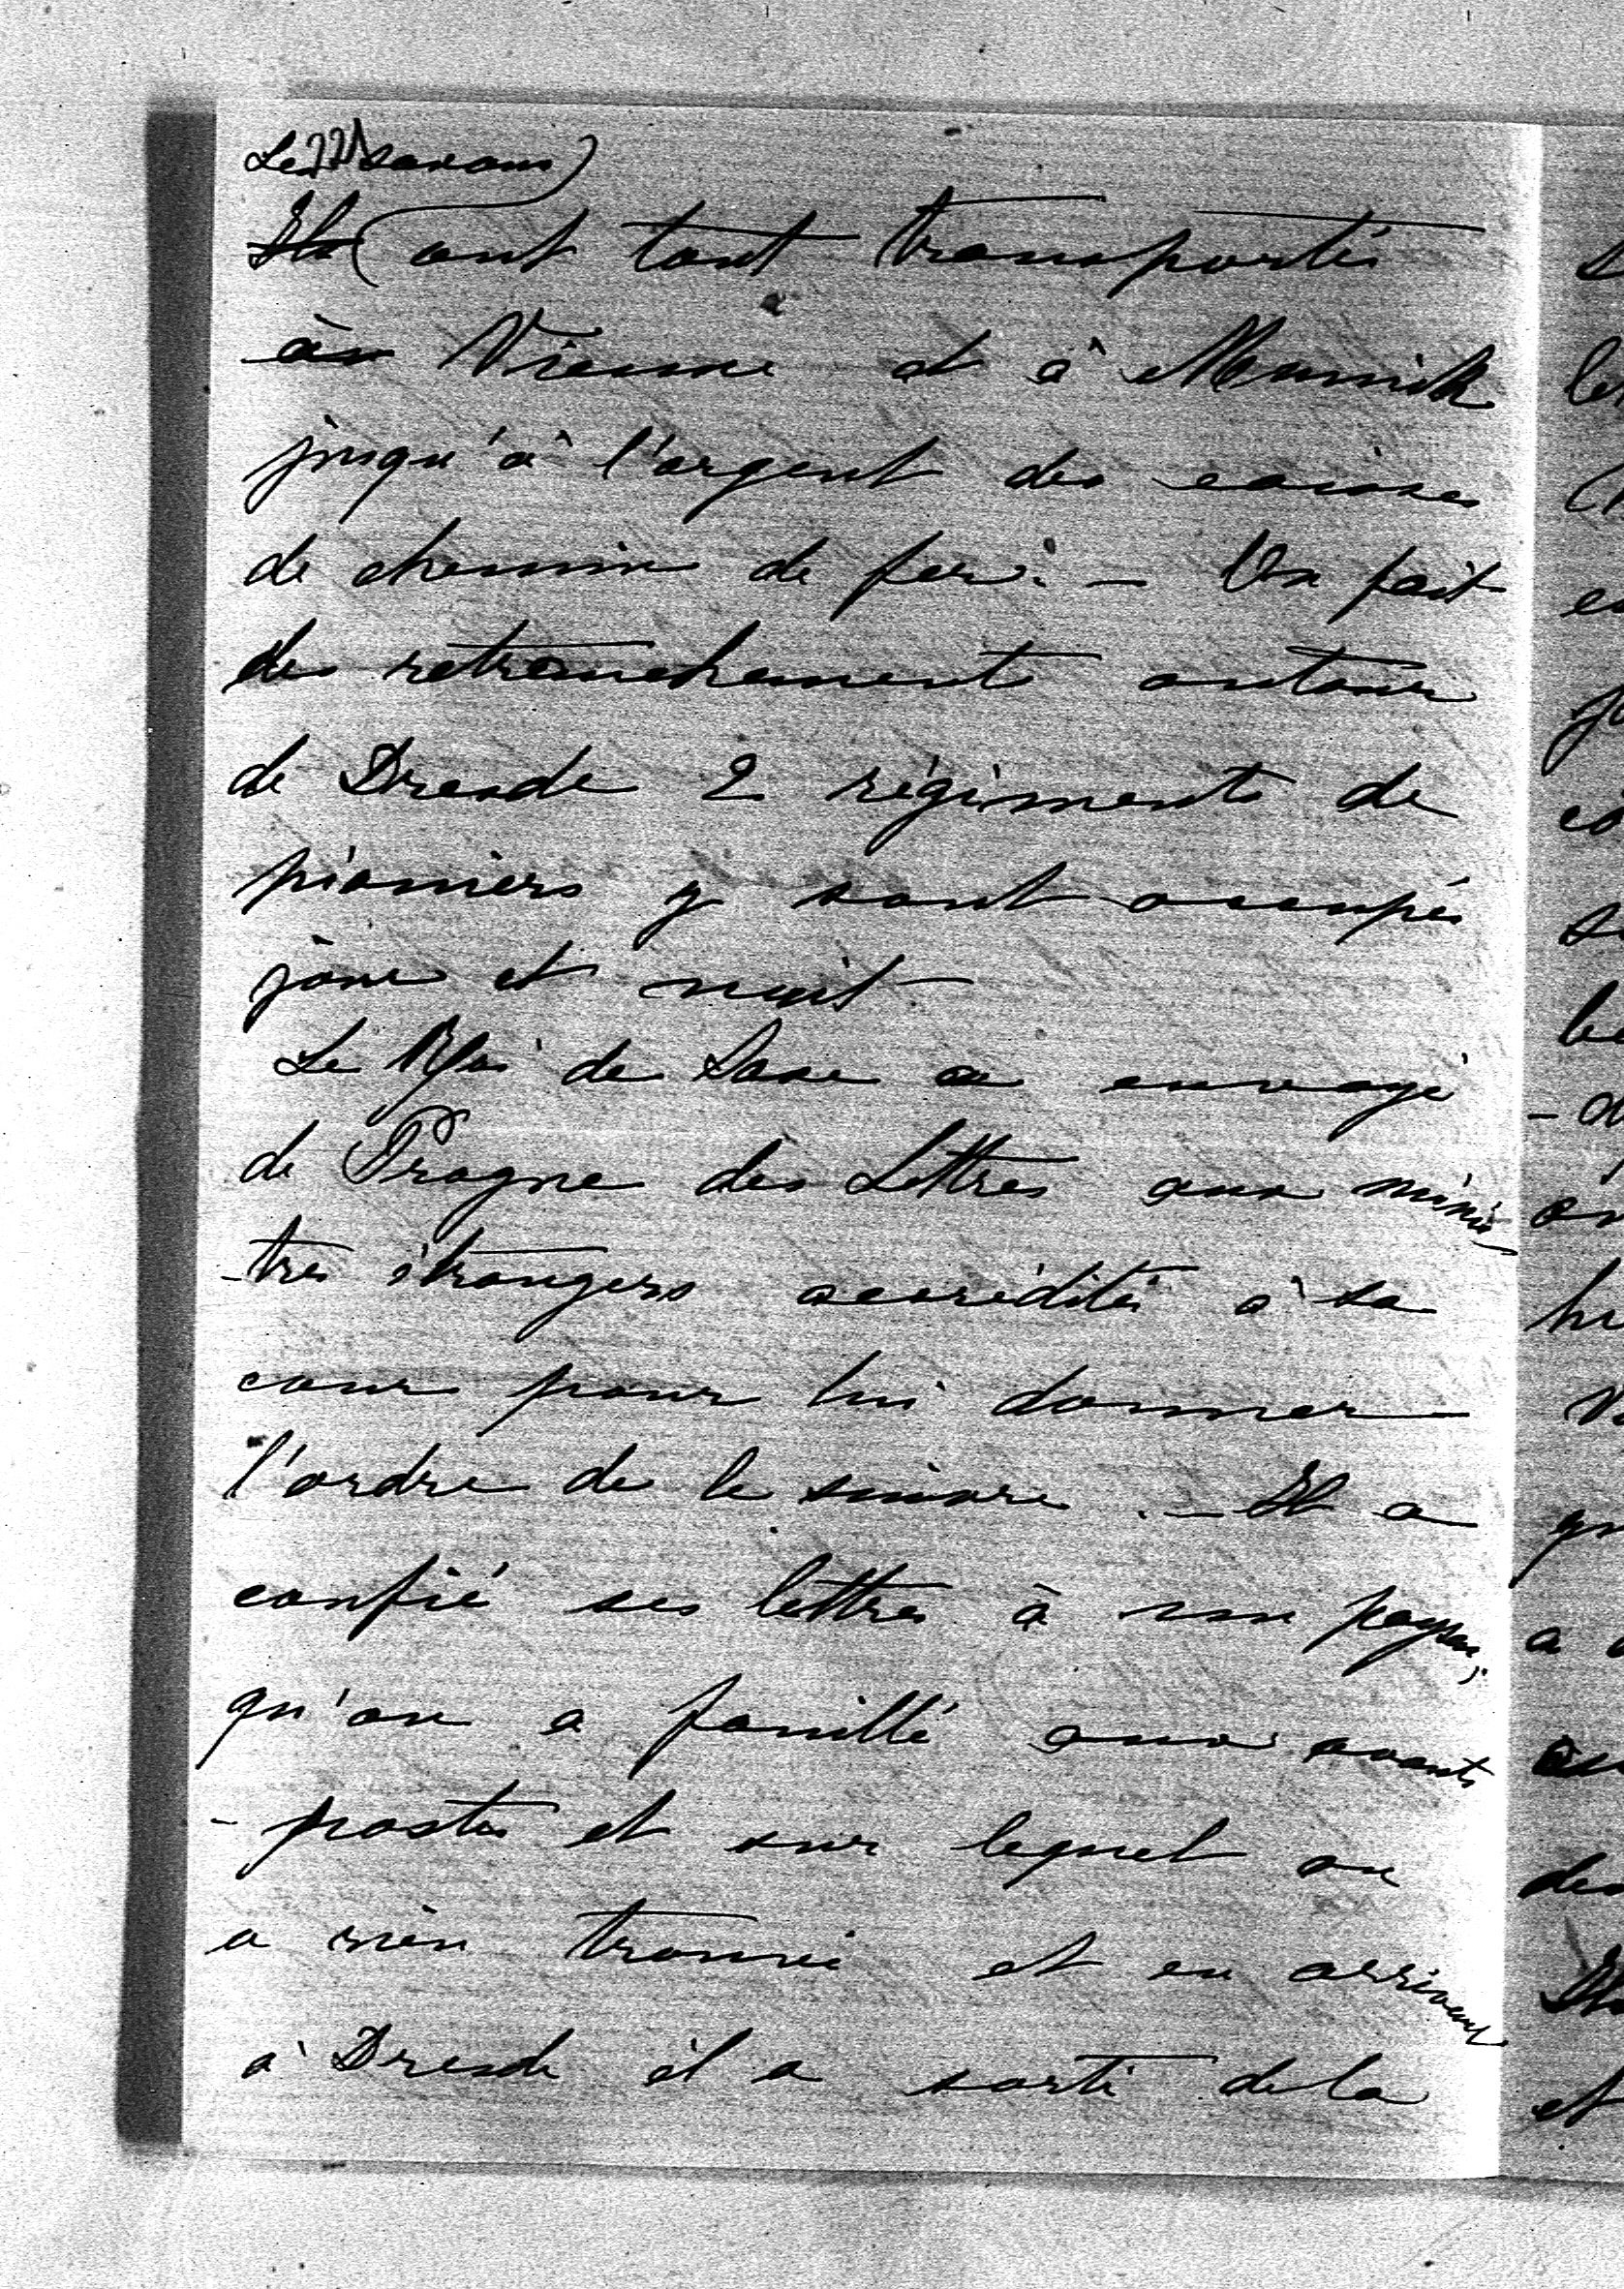 Les Saxons
~~Ils~~ ont tout transportés
à Vienne et à Munick
jusqu'à l'argent des caisses
de chemin de fer. — On fait
des retranchements autour
de Dresde 2 régiments de
pionniers y sont occupés
jour et nuit
Le Roi de Saxe a envoyé
de Prague des Lettres aux minis-
-tres étrangers accrédités à sa
cour pour lui donner
l'ordre de le suivre. — Il a
confié ses lettres à un paysan,
qu'on a fouillé aux avants
-postes et sur lequel on
a rien trouvé et en arrivant
à Dresde il a sorti de la